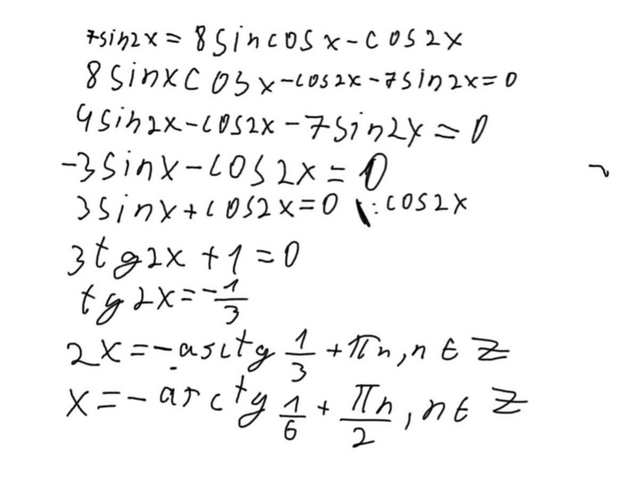 7sin2x = 8sincosx-cos2x
8sinxcosx-cos2x-7sin2x=0
4sin2x-cos2x-7sin2x=0
-3sinx-cos2x=0
3sinx+cos2x=0 \:cos2x
3tg2x+1=0
tg2x=-1/3
2x=-arctg 1/3 +πn, n∈Z
x=-arctg 1/6 + πn/2, n∈Z